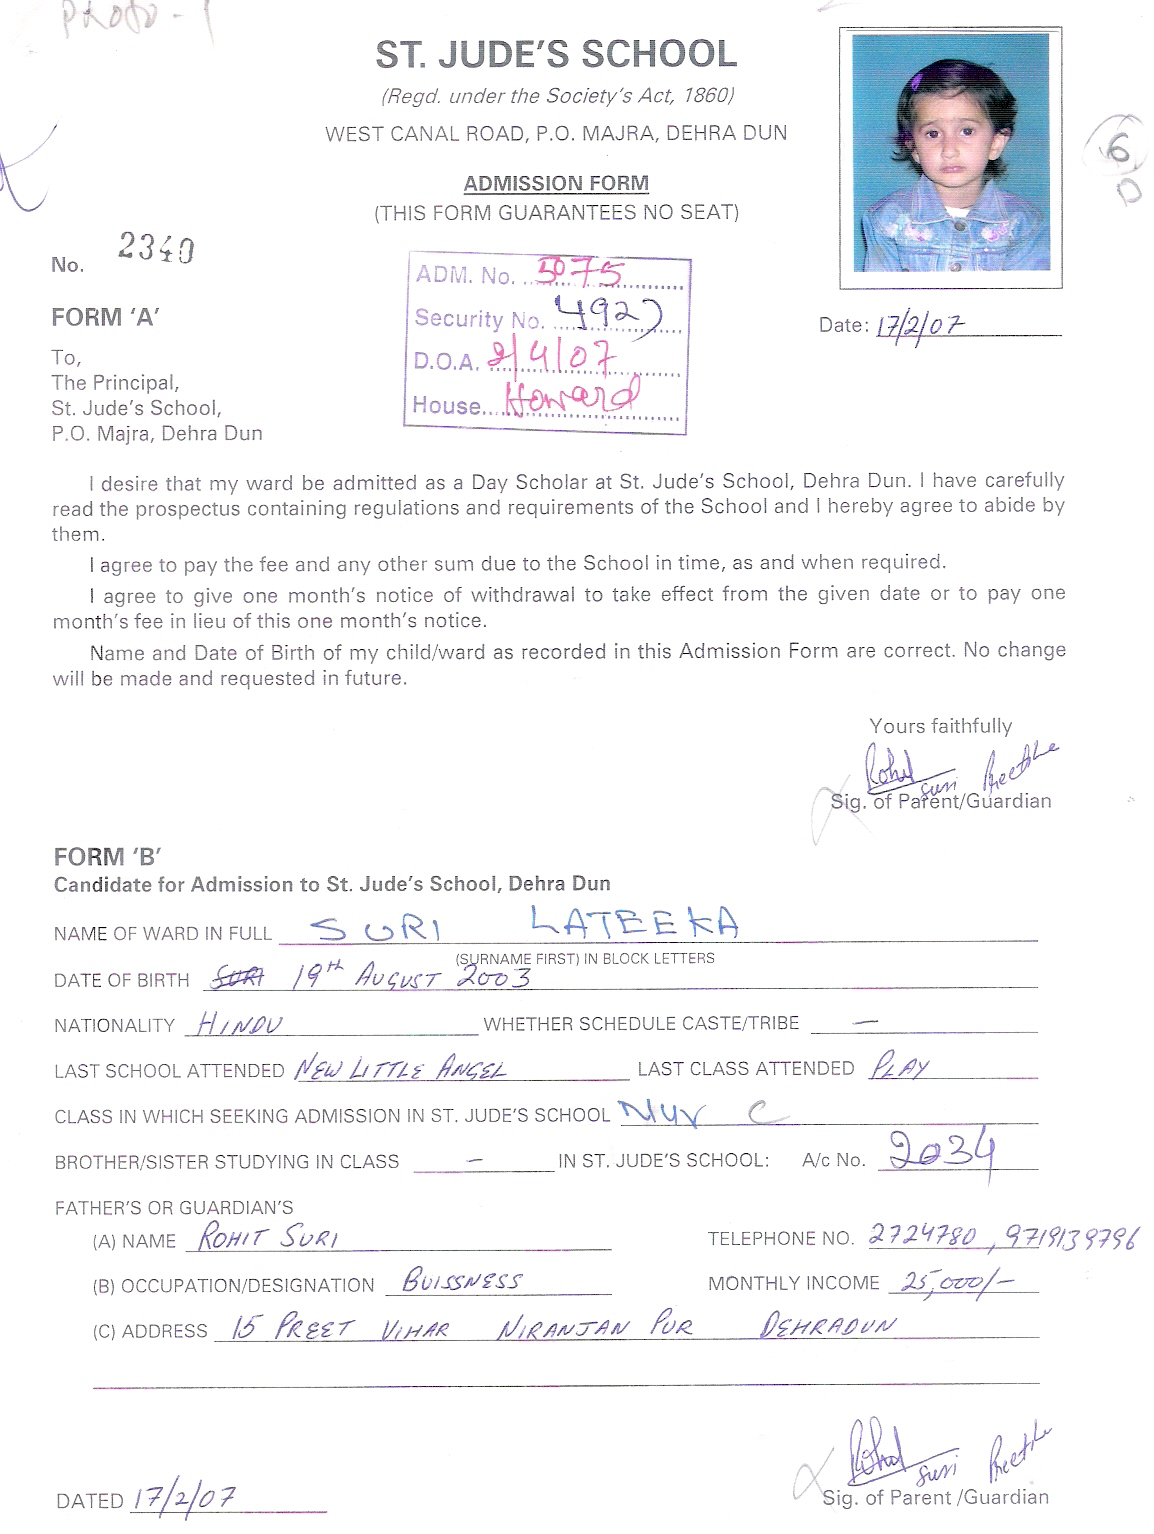 PROTO - 1
ST. JUDE'S SCHOOL
(Regd. under the Society's Act, 1860)
WEST CANAL ROAD, P.O. MAJRA, DEHRA DUN
ADMISSION FORM
(THIS FORM GUARANTEES NO SEAT)
6
0
No. 2340
ADM. No. 5075
Security No. 4927
D.O.A. 2/4/07
House. Howard
FORM 'A'
Date: 17/2/07
To,
The Principal,
St. Jude's School,
P.O. Majra, Dehra Dun
I desire that my ward be admitted as a Day Scholar at St. Jude's School, Dehra Dun. I have carefully
read the prospectus containing regulations and requirements of the School and I hereby agree to abide by
them.
I agree to pay the fee and any other sum due to the School in time, as and when required.
I agree to give one month's notice of withdrawal to take effect from the given date or to pay one
month's fee in lieu of this one month's notice.
Name and Date of Birth of my child/ward as recorded in this Admission Form are correct. No change
will be made and requested in future.
Yours faithfully
Suri
Sig. of Parent/Guardian
FORM 'B'
Candidate for Admission to St. Jude's School, Dehra Dun
NAME OF WARD IN FULL SURI LATEEKA
(SURNAME FIRST) IN BLOCK LETTERS
DATE OF BIRTH SURI 19TH AUGUST 2003
NATIONALITY HINDU WHETHER SCHEDULE CASTE/TRIBE —
LAST SCHOOL ATTENDED NEW LITTLE ANGEL LAST CLASS ATTENDED PLAY
CLASS IN WHICH SEEKING ADMISSION IN ST. JUDE'S SCHOOL C
BROTHER/SISTER STUDYING IN CLASS – IN ST. JUDE'S SCHOOL: A/c No. 2034
FATHER'S OR GUARDIAN'S
(A) NAME ROHIT SURI TELEPHONE NO. 2724780, 9719139796
(B) OCCUPATION/DESIGNATION BUISSNESS MONTHLY INCOME 25,000/-
(C) ADDRESS 15 PREET VIHAR NIRANJAN PUR DEHRADUN
Suri
DATED 17/2/07 Sig. of Parent /Guardian